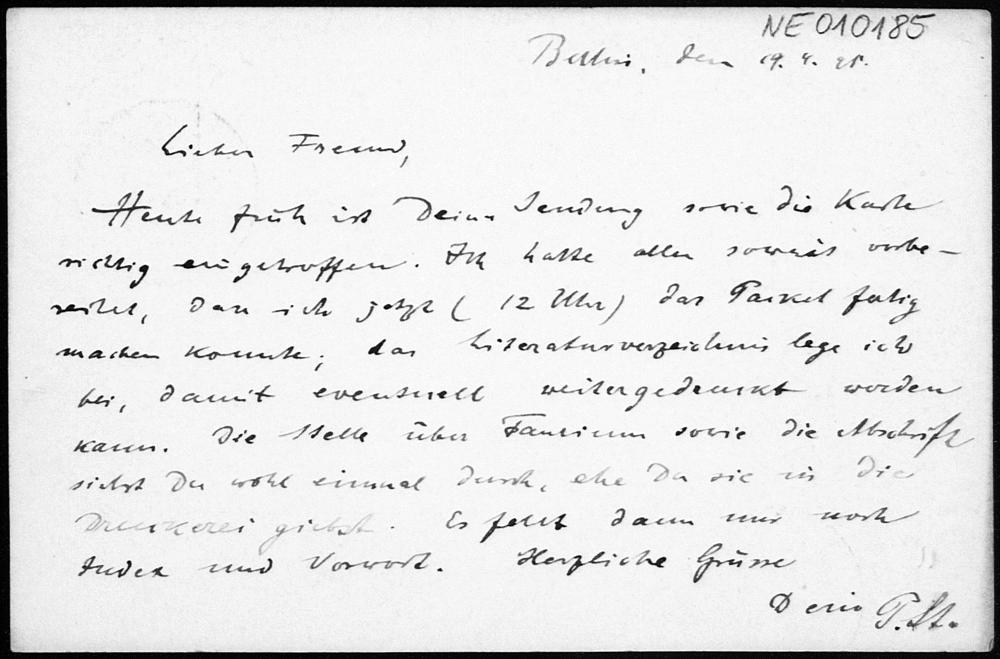 NE 010185
Berlin, den 19. 4. 21.
Lieber Freund,
Heute früh ist Deine Sendung sowie die Karte
richtig eingetroffen. Ich hatte alles soweit vorbe-
reitet, dass ich jetzt (12 Uhr) das Packet fertig
machen konnte; das Literaturverzeichnis lege ich
bei, damit eventuell weitergedruckt werden
kann. Die Stelle über sowie die Abschrift
siehst Du wohl einmal durch, ehe Du sie in die
Druckerei giebst. Es fehlt dann nur noch
Index und Vorwort. Herzliche Grüsse
Dein P. St.